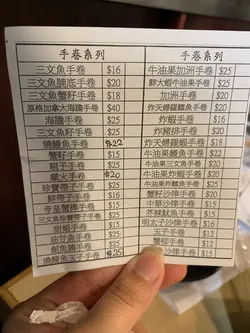 手卷系列 手卷系列
三文魚手卷 $16 牛油果加洲手卷 $25
三文魚腩底手卷 $20 鮮大蝦牛油果手卷 $25
三文魚蟹籽手卷 $18 加洲手卷 $20
原格加拿大海膽手卷 $40 炸天婦羅鱔手卷 $20
海膽手卷 $25 炸蝦手卷 $16
三文魚籽手卷 $25 炸豬排手卷 $20
燒鰻魚手卷 $22 炸天婦羅蝦手卷 $18
蟹籽手卷 $15 牛油果鰻魚手卷 $25
蝦子手卷 $15 牛油果三文魚手卷 $25
鐵火手卷 $20 牛油果吞拿魚手卷 $25
珍寶帶子手卷 $25 蟹籽沙律手卷 $15
帝皇蟹柳手卷 $15 中華沙律手卷 $15
三文魚珍寶帶子手卷 $25 芥辣魷魚手卷 $15
甜蝦手卷 $15 明太子沙律手卷 $16
油甘魚手卷 $25 玉子手卷 $12
魚手卷 $25 蟹柳手卷 $12
燒鰻魚玉子手卷 $25 沙律手卷 $15